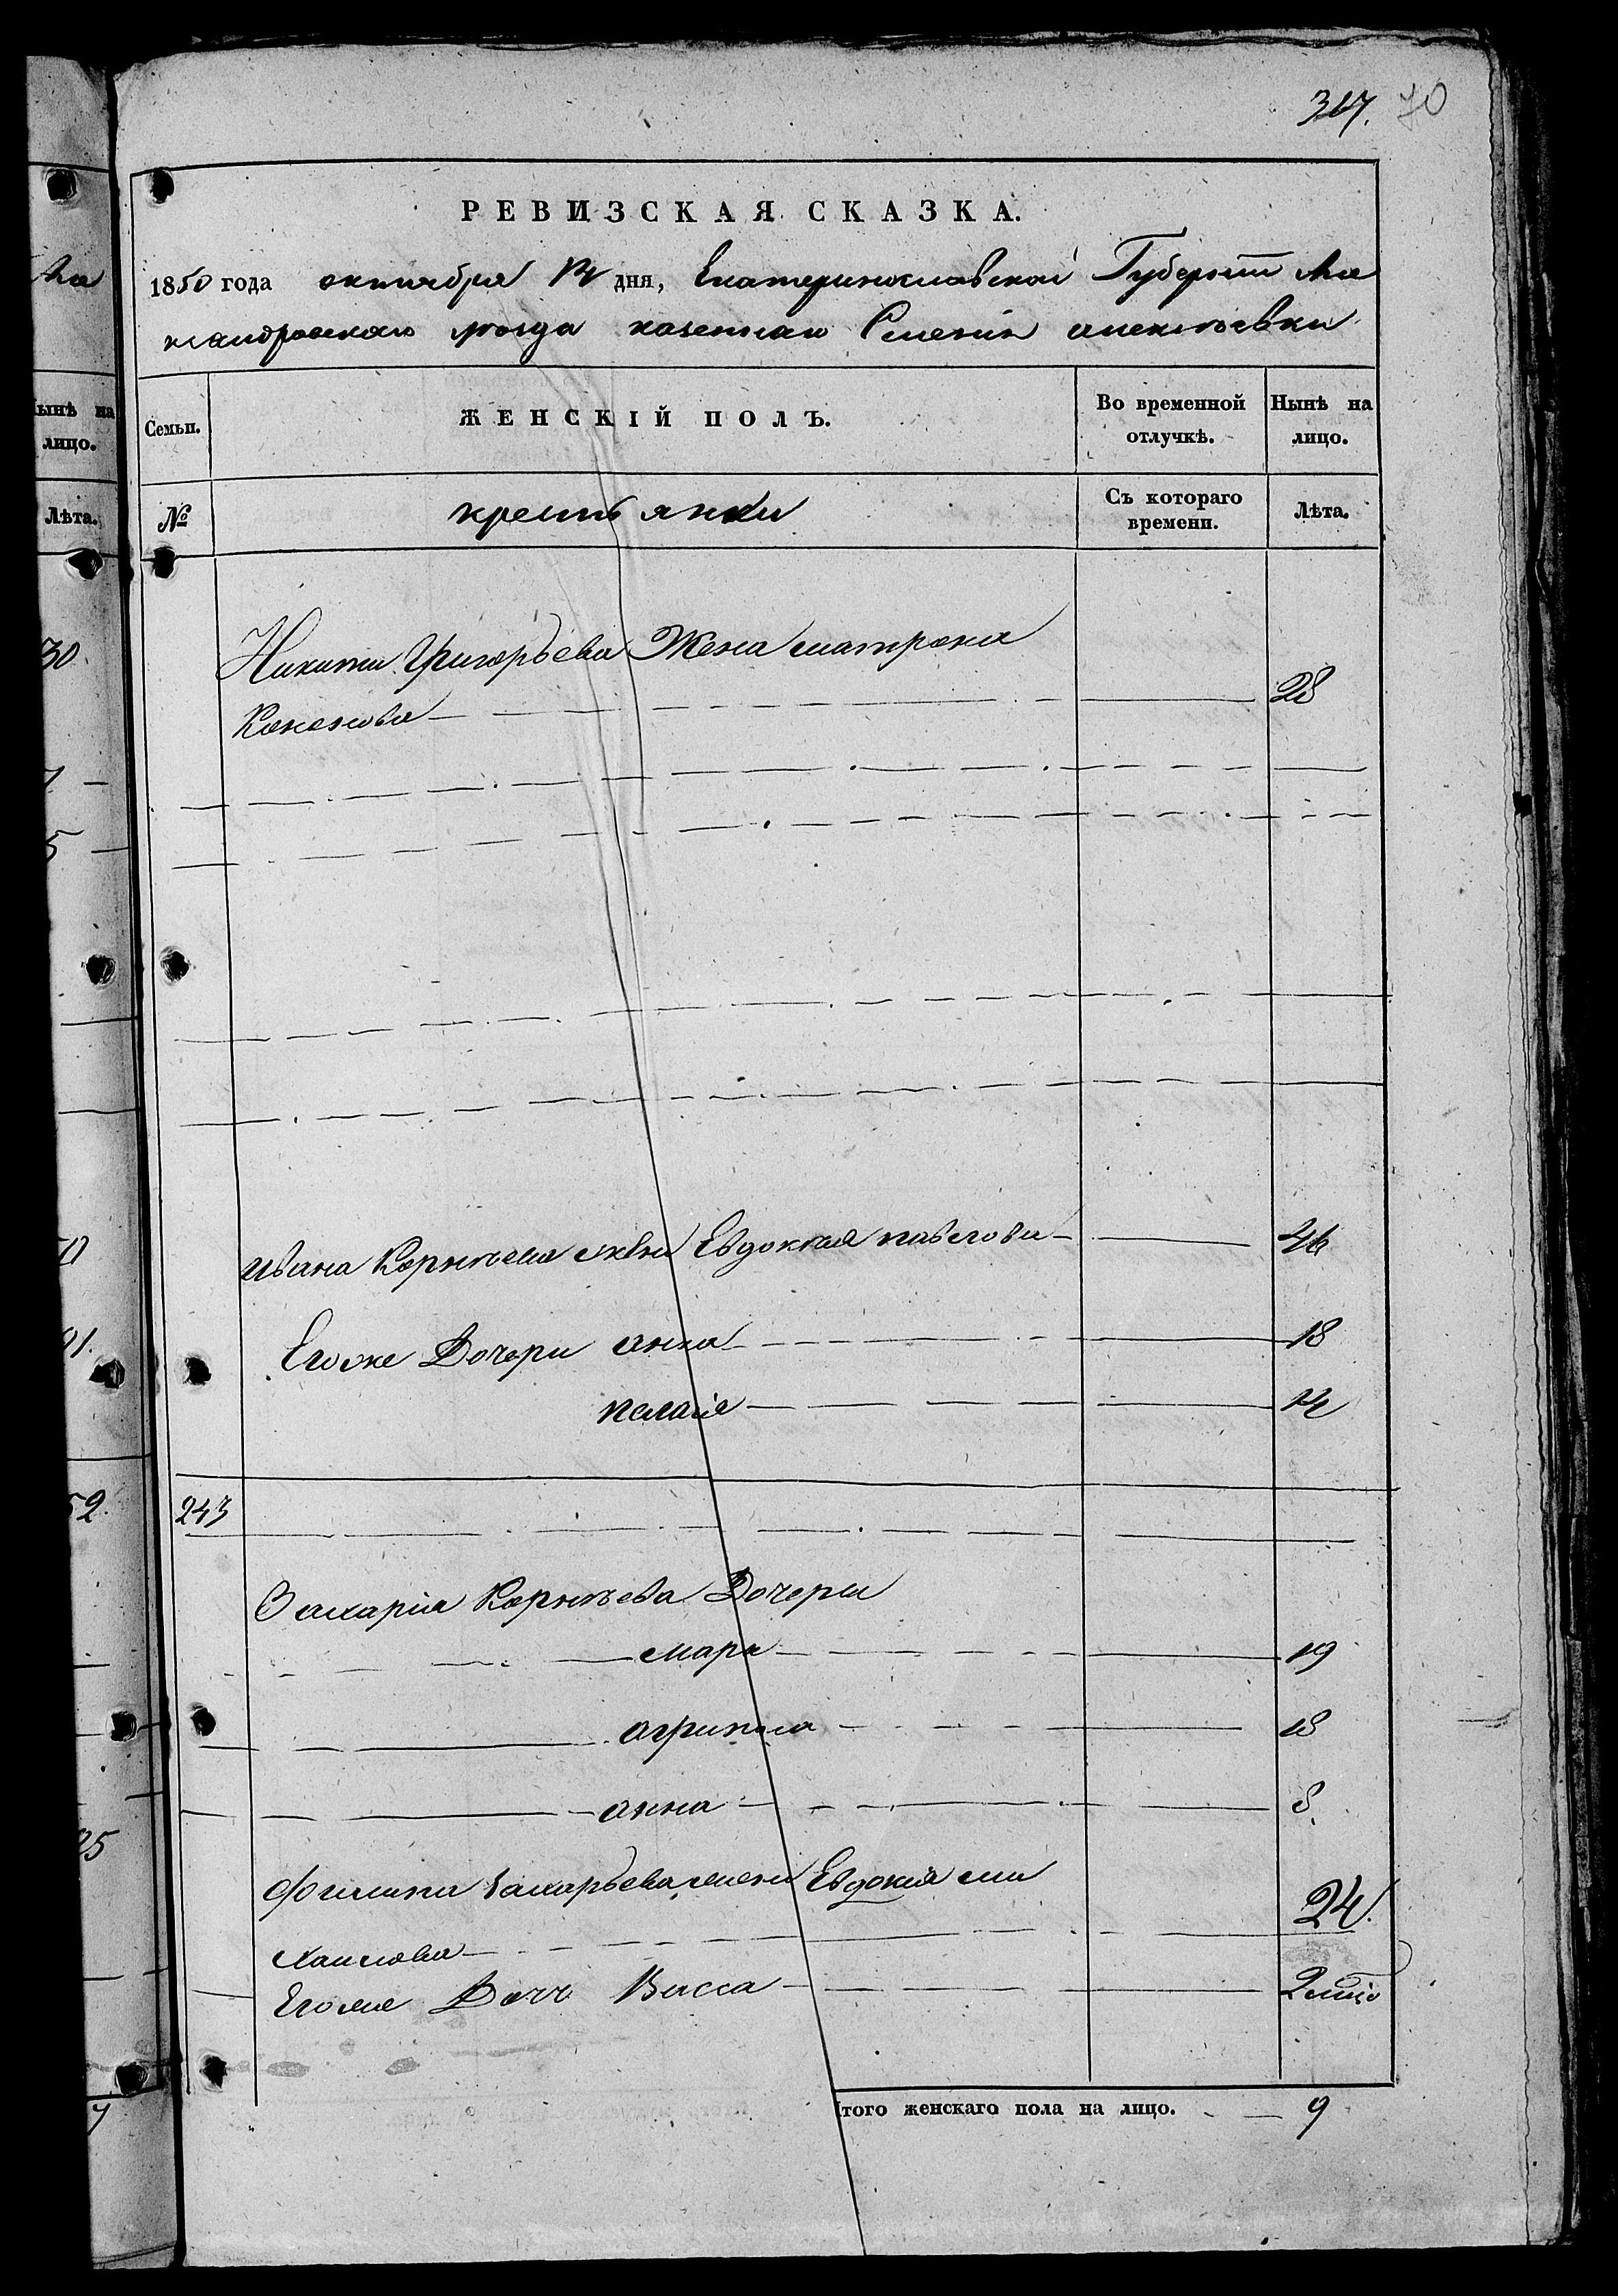 367. 70
РЕВИЗСКАЯ СКАЗКА.
1850 года октября 14 дня, Екатеринославской Губернии Але
ксандровского уезда казенного Селенія алексѣевки
Семьи. ЖЕНСКІЙ ПОЛЪ. Во временной отлучкѣ. Нынѣ на лицо.
№ крестьянки Съ котораго времени. Лѣта.
Никиты Григорьева Жена матрона
Кононова 28
Ивана Корнѣева жена Евдокия павлова 46
Егоже Дочери анна 18
пелагія 14
243
Захарія Корнѣева Дочери
марья 19
агрипина 18
анна 8
Филипа Захарьева жена Евдокия ми
хаилова 24.
Егоже Дочь Васса
Итого женскаго пола на лицо. 9
ынѣ на
лицо.
Лѣта.
30.
5
52.